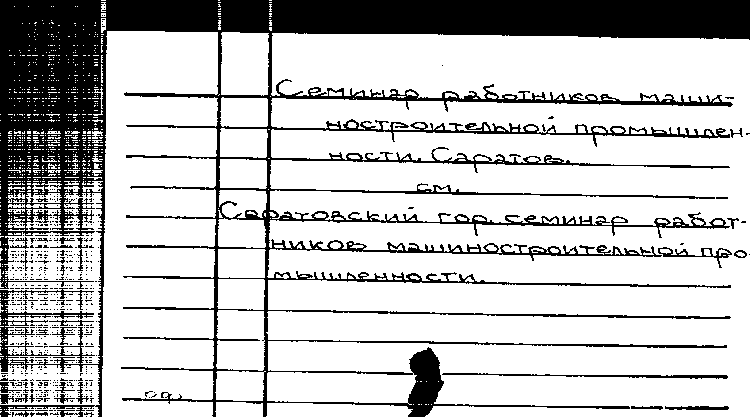 Семинар работников маши-
ностроительной промышлен-
ности. Саратов.
см.
Саратовский гор. семинар работ-
ников машиностроительной про-
мышленности.